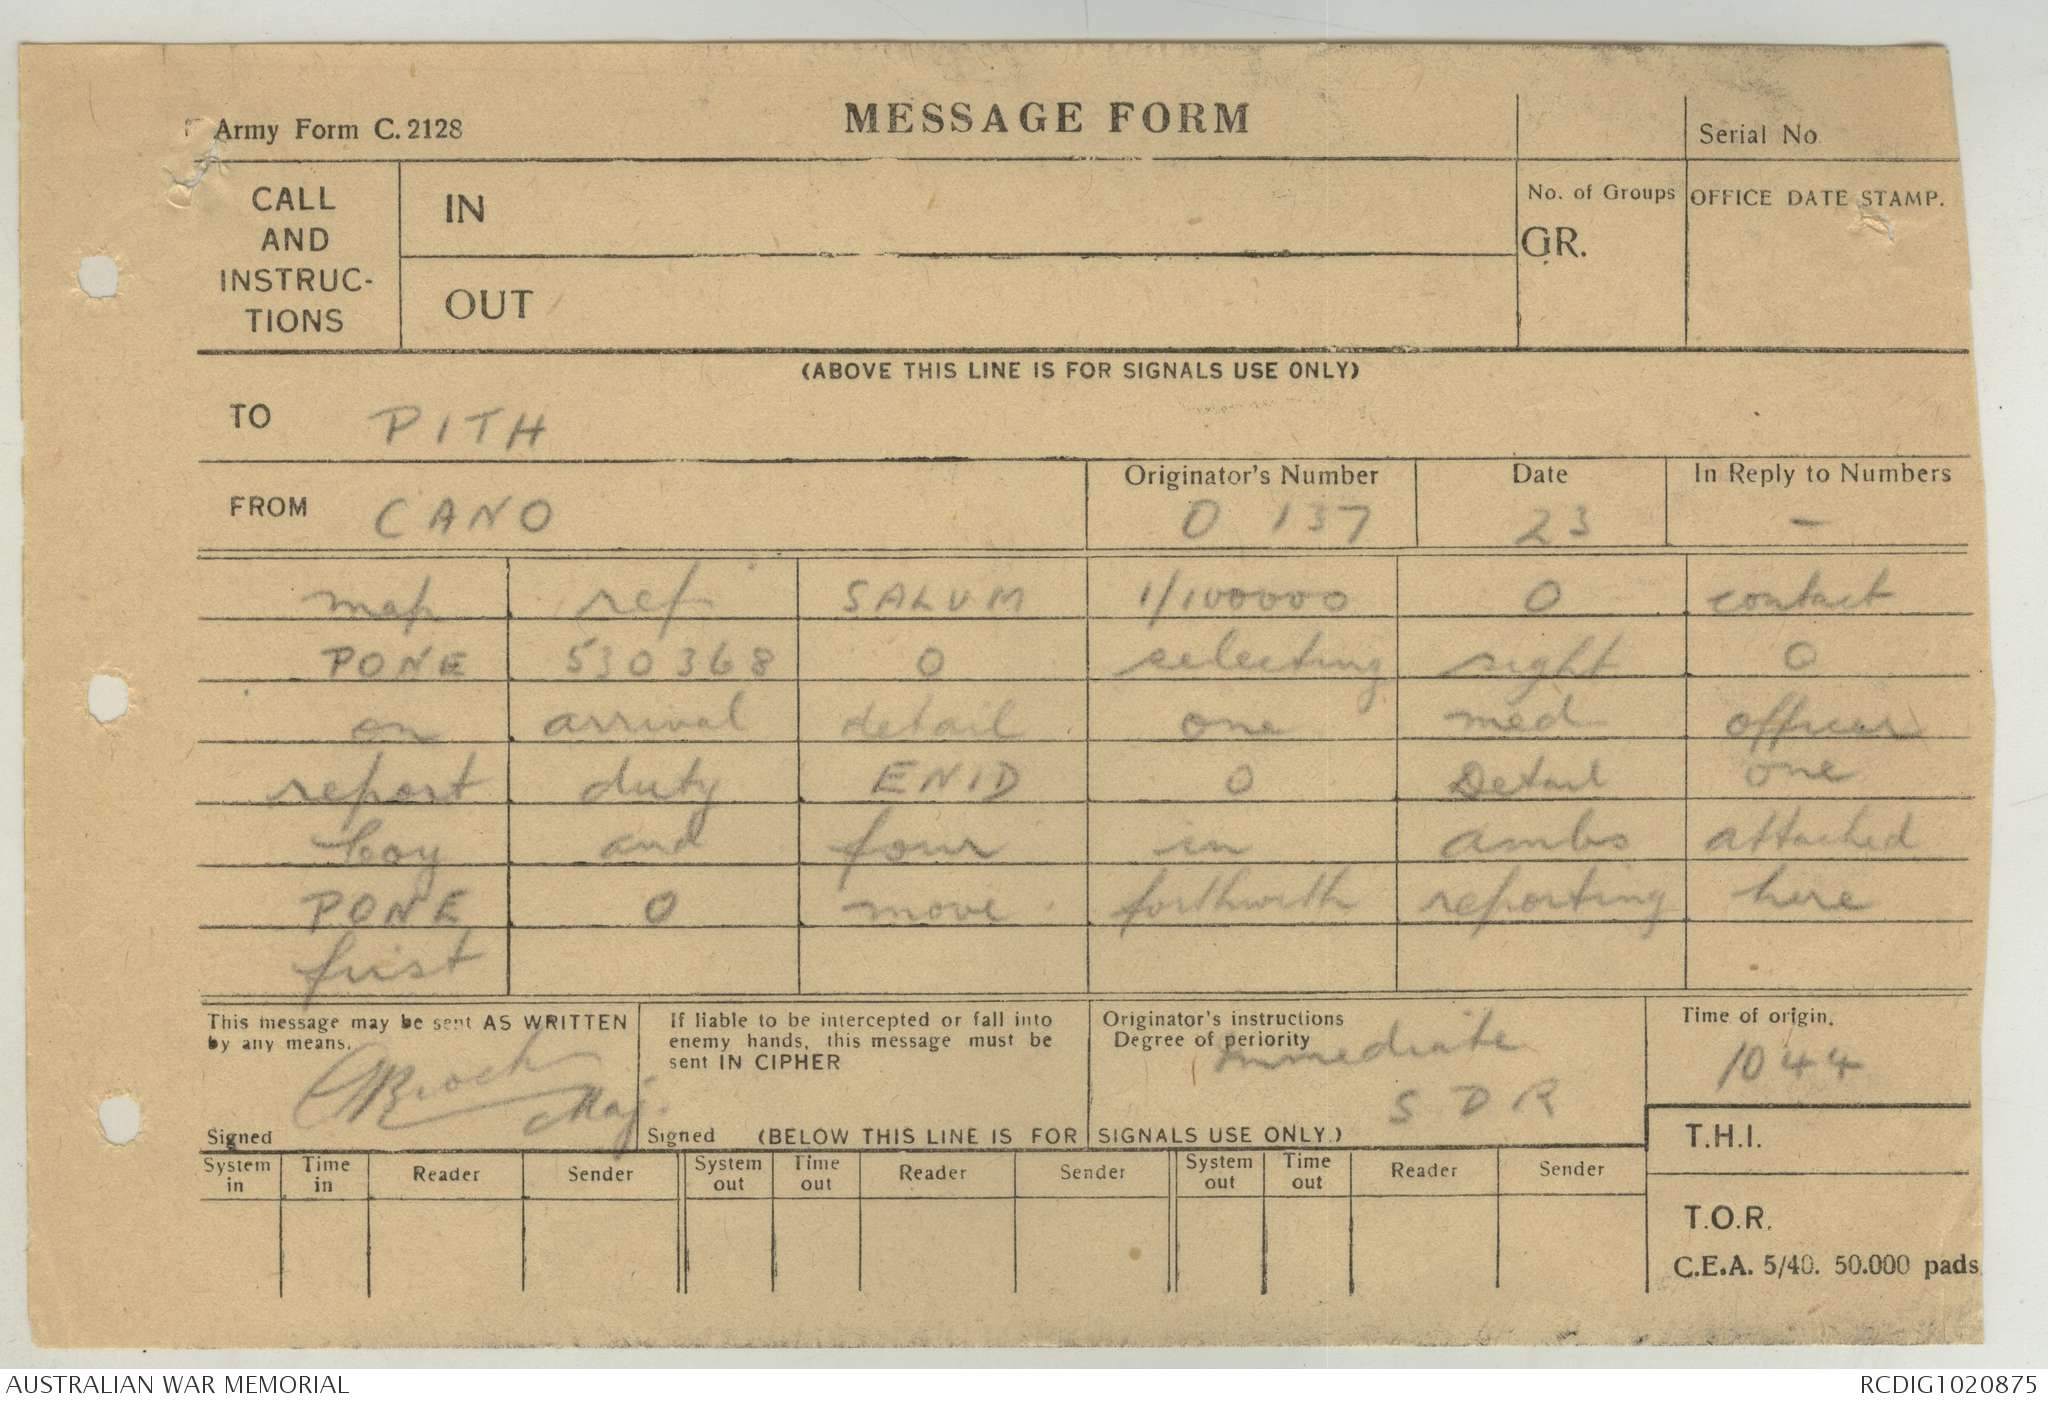 Army Form C. 2128
MESSAGE FORM
Serial No
CALL AND INSTRUC-TIONS
IN
OUT
No. of Groups
GR.
OFFICE DATE STAMP.
(ABOVE THIS LINE IS FOR SIGNALS USE ONLY)
TO PITH
FROM CANO
Originator's Number
O 137
Date
23
In Reply to Numbers
-
map ref SALUM 1/100000 0 contact
PONE 530368 0 selecting sight 0
on arrival detail one med officer
report duty ENID 0 Detail one
coy and four in ambs attached
PONE 0 move forthwith reporting here
first
This message may be sent AS WRITTEN
by any means.
Maj.
Signed
If liable to be intercepted or fall into
enemy hands, this message must be
sent IN CIPHER
Signed
Originator's instructions
Degree of periority
Immediate
S D R
Time of origin.
1044
(BELOW THIS LINE IS FOR SIGNALS USE ONLY.)
T.H.I.
System in Time in Reader Sender System out Time out Reader Sender System out Time out Reader Sender
T.O.R.
C.E.A. 5/40. 50.000 pads
AUSTRALIAN WAR MEMORIAL
RCDIG1020875